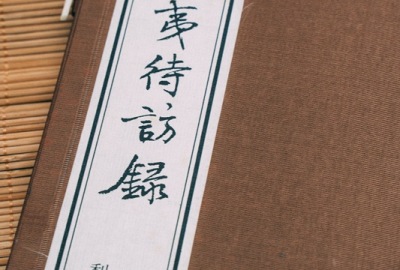 夷待訪録